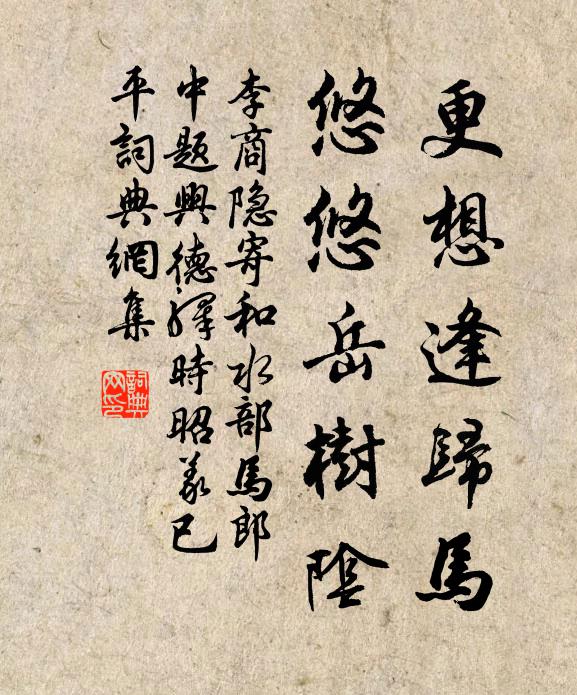 更想逢歸馬
悠悠岳樹陰
李商隐寄和水部馬郎
中題興德驛時昭義已
平詞典網集
詞典
网印